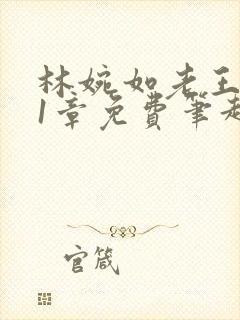 林婉如老王
1章免费筆趣
官箴